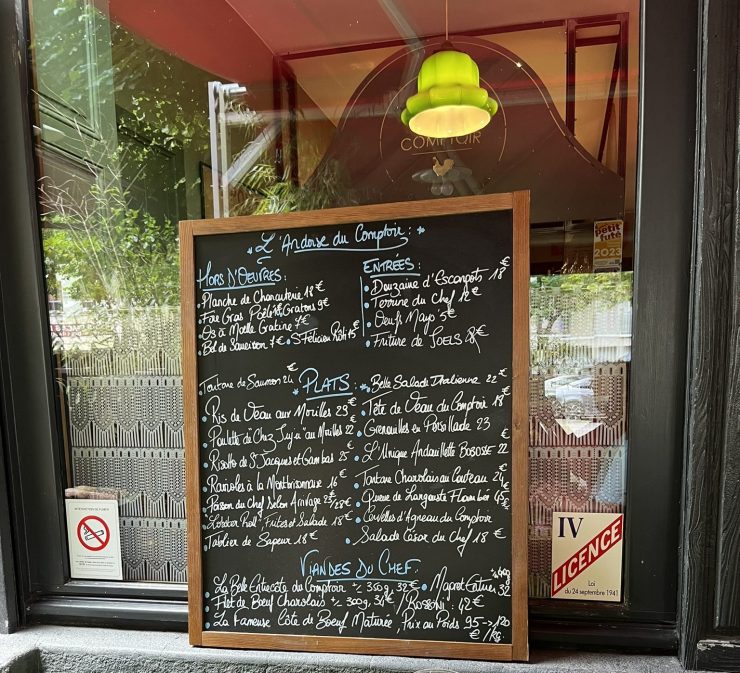 COMPTOIR
petit futé
2023
L'Ardoise du Comptoir :
HORS D'OEUVRES :
Planche de Charcuterie 18 €
Foie Gras Poêlé & Gratons 9€
Os à Moelle Gratiné 7€
Bol de Saucisson 7€ • St Félicien Rôti 15 €
ENTRÉES :
Douzaine d'Escargots 18 €
Terrine du Chef 12 €
Oeufs Mayo 5 €
Friture de JOELS 8€
Tartare de Saumon 24 €
PLATS :
Ris de Veau aux Morilles 29 €
Poulette du "Chez Juju" au Morilles 22 €
Risotto de St Jacques et Gambas 25 €
Ravioles à la Montbrisonnaise 16 €
Poisson du Chef Selon Arrivage
"Lobster Roll" Frites et Salade 18 €
Tablier de Sapeur 18 €
Belle Salade Italienne 22 €
Tête de Veau du Comptoir 18 €
Grenouilles en Persillade 23
L'Unique Andouillette BOBOSSE 22 €
Tartare Charolais au Couteau 24 €
Queue de Langouste Flambée 45 €
Cervelles d'Agneau du Comptoir
Salade César du Chef 18 €
VIANDES DU CHEF
La Belle Entrecôte du Comptoir +/- 350g, 32€ • Magret Entier 32
Filet de Boeuf Charolais +/- 300g, 34€ / ROSSINI : 42 €
La Fameuse Côte de Boeuf Maturée, Prix au Poids 95 → 120 € /kg.
IV
LICENCE
Loi
du 24 septembre 1941